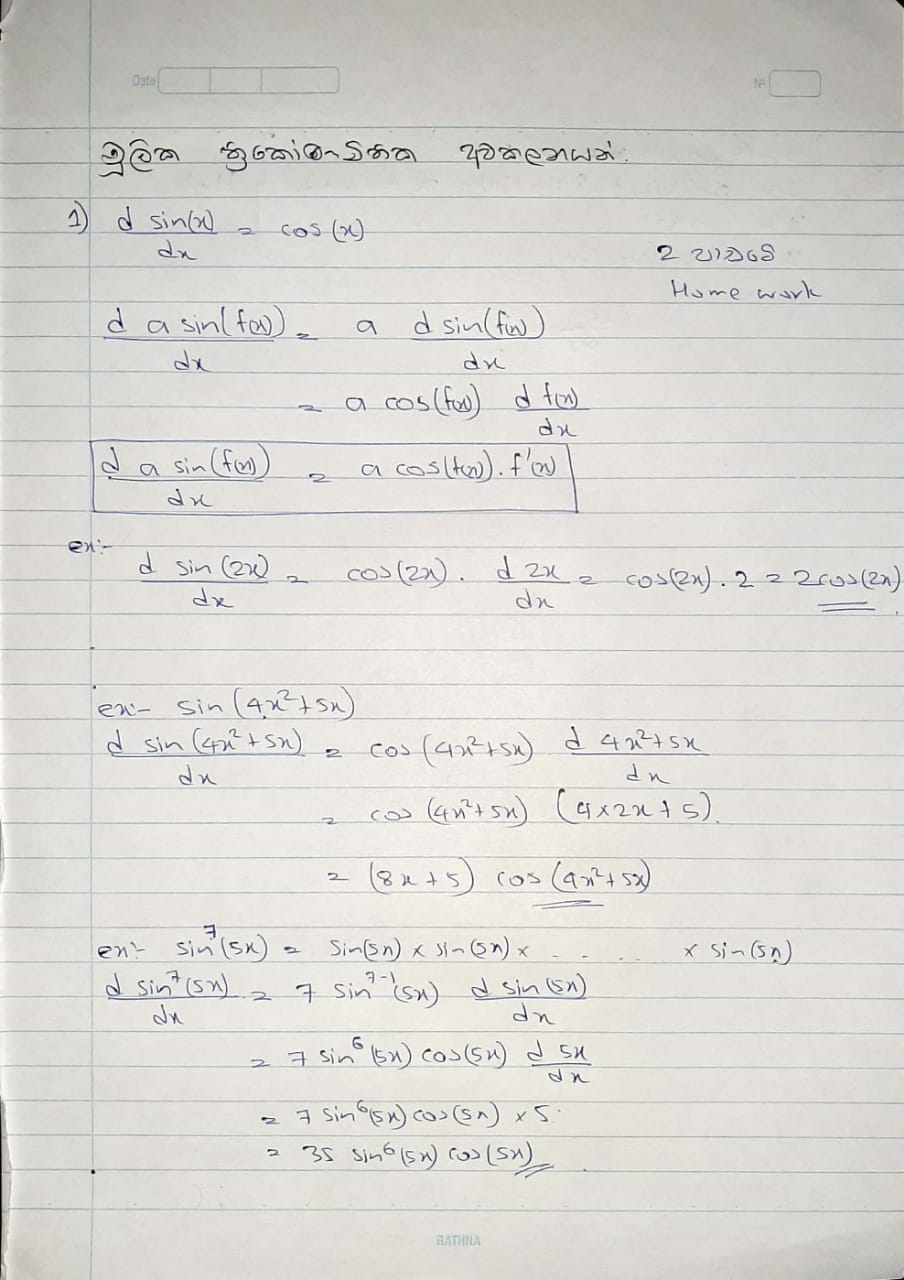 Date
No
මූලික ත්‍රිකෝණමිතික අවකලනයන්.
1) d sin(x)/dx = cos (x)
2 පාඩමේ
Home work
d a sin(f(x))/dx = a d sin(f(x))/dx
= a cos(f(x)) d f(x)/dx
d a sin(f(x))/dx = a cos(f(x)). f'(x)
ex:-
d sin (2x)/dx = cos(2x). d 2x/dx = cos(2x). 2 = 2cos(2x)
ex:- sin (4x²+5x)
d sin (4x²+5x)/dx = cos (4x²+5x) d 4x²+5x/dx
= cos (4x²+5x) (4×2x+5).
= (8x+5) cos (4x²+5x)
ex:- sin⁷(5x) = sin(5x) × sin(5x) × - . . .. × sin(5x)
d sin⁷(5x)/dx = 7 sin⁷⁻¹(5x) d sin(5x)/dx
= 7 sin⁶(5x) cos(5x) d 5x/dx
= 7 sin⁶(5x) cos(5x) × 5.
= 35 sin⁶(5x) cos(5x)
RATHNA